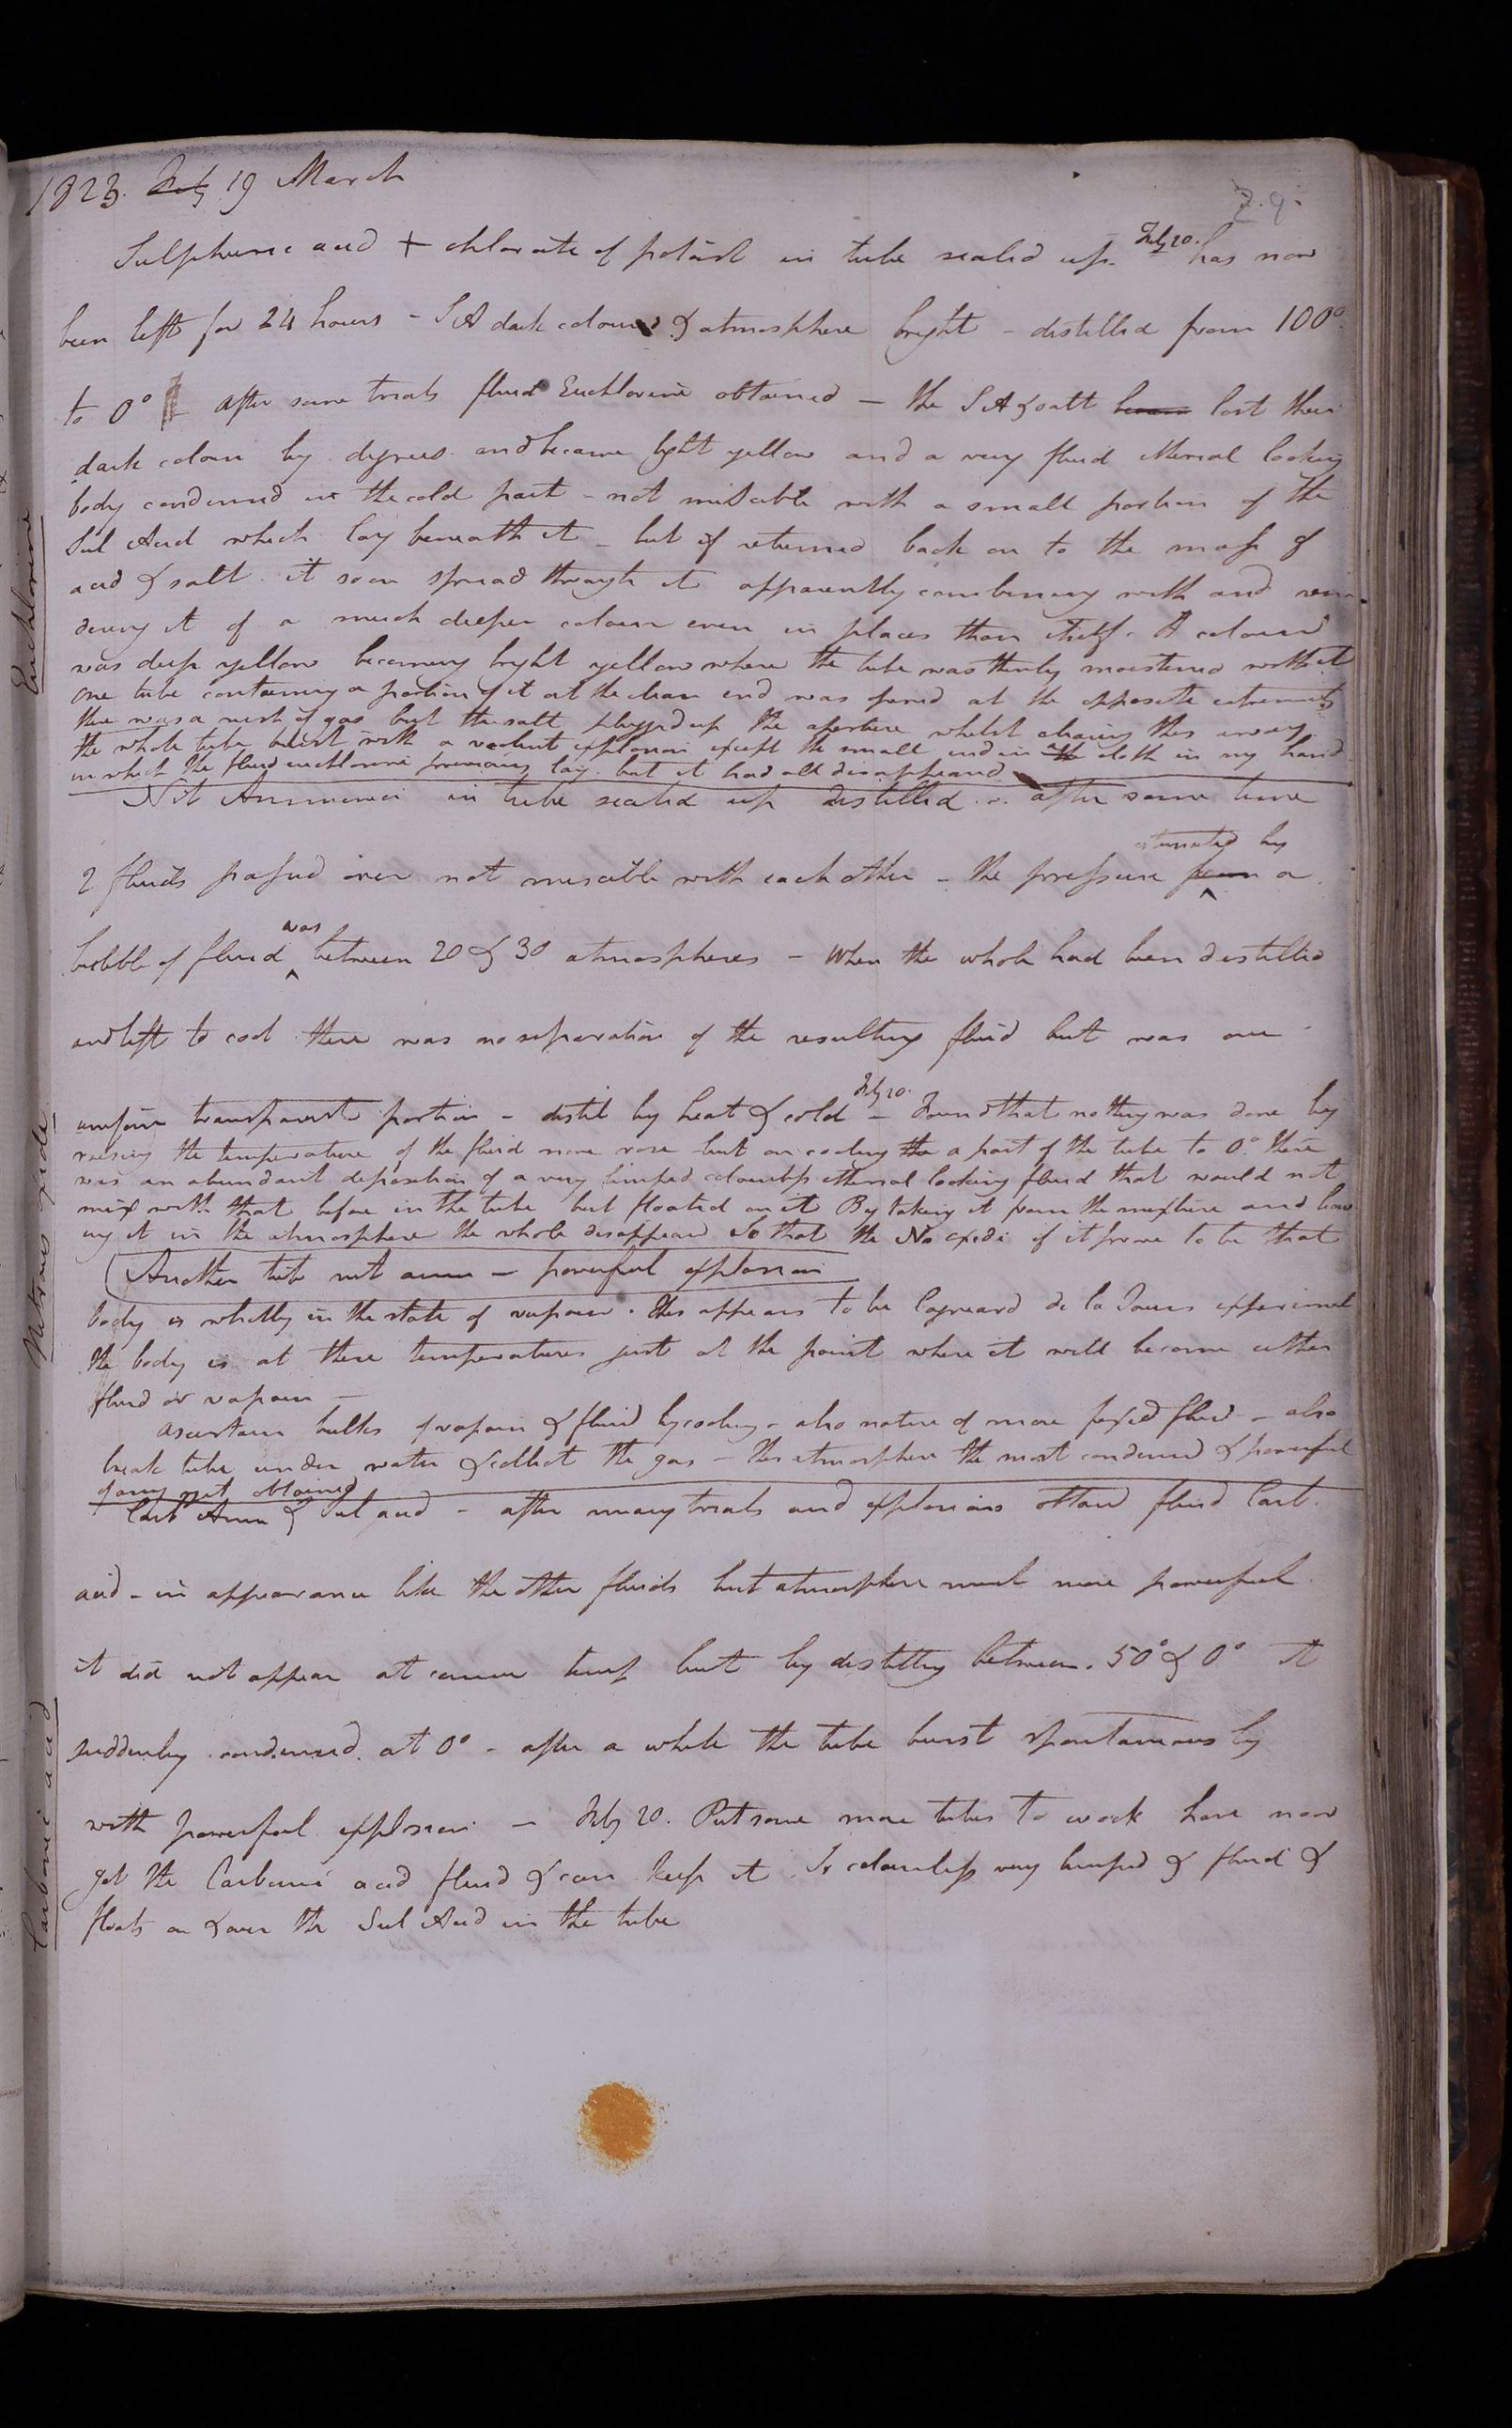 1823. Feby 19 March
Z. 9.
Sulphuric acid + chlorate of potash in tube sealed up Feby 20. has now
been left for 24 hours - S A dark coloured & atmosphere bright - distilled from 100°
to 0° after some trials fluid Euchlorine obtained - the S A & salt became lost their
dark colour by degrees and became light yellow and a very fluid etherial looking
body condensed in the cold part - not miscible with a small portion of the
Sul Acid which lay beneath it - but if returned back on to the mass of
acid & salt it soon spread through it apparently combining with and ren
dering it of a much deeper colour even in places than itself. A colour
was deep yellow becoming bright yellow where the tube was thinly moistened with it
One tube containing a portion of it at the clean end was opened at the opposite extremity
there was a rush of gas but the salt plugged up the aperture whilst clearing this away
the whole tube burst with a violent explosion except the small end in the cloth in my hand
in which the fluid euchlorine previously lay but it had all disappeared
Euchlorine
Nit Ammonia in tube sealed up distilled .. after some time
2 fluids passed over not miscible with each other - the pressure from estimated by a
bubble of fluid was between 20 & 30 atmospheres - When the whole had been distilled
and left to cool there was no separation of the resulting fluid but was one
uniform transparent portion - distil by heat & cold Feby 20. - Found that nothing was done by
raising the temperature of the fluid none rose but on cooling the a part of the tube to 0° there
was an abundant deposition of a very limpid colourless etherial looking fluid that would not
mix with that before in the tube but floated on it By taking it from the mixture and leav
ing it in the atmosphere the whole disappeared So that the No oxide if it prove to be that
Another tube nit amm - powerful explosion
body is wholly in the state of vapour. this appears to be Cagniard de la Tours experiment
the body is at these temperatures just at the point where it will become either
fluid or vapour -
ascertain bulks of vapour & fluid by cooling - also nature of more fixed fluid - also
break tube under water & collect the gas - this atmosphere the most condensed & powerful
of any yet obtained
Nitrous oxide
Carb Amm & Sul acid - after many trials and explosions obtained fluid Carb.
acid - in appearance like the other fluids but atmosphere much more powerful.
it did not appear at common temp but by distilling between 50° & 0° it
suddenly condensed at 0° - after a while the tube burst spontaneously
with powerful explosion - Feby 20. Put some more tubes to work have now
got the Carbonic acid fluid & can keep it Is colourless very limpid & fluid &
floats on & over the Sul Acid in the tube
Carbonic acid